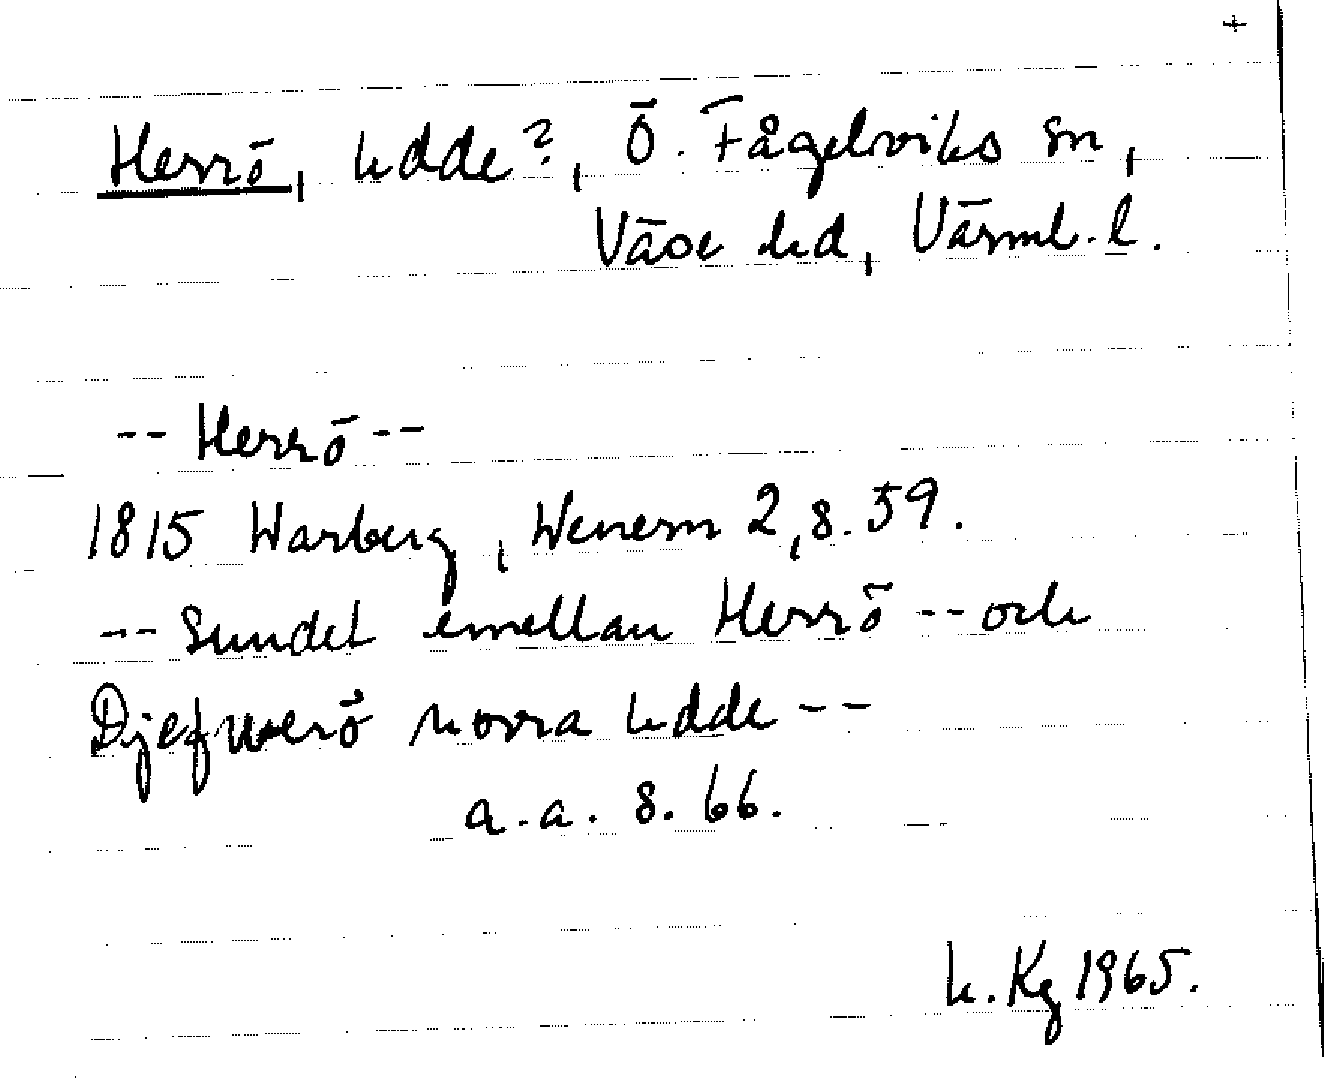 +
Herrö, Udde?, Ö. Fågelviks sn,
Väse hd, Värml. l.
-- Herrö --
1815 Warberg, Wenern 2, s. 59.
-- Sundet emellan Herrö -- och
Djefwulsö norra Udde --
a.a. s. 66.
h. Kg 1965.